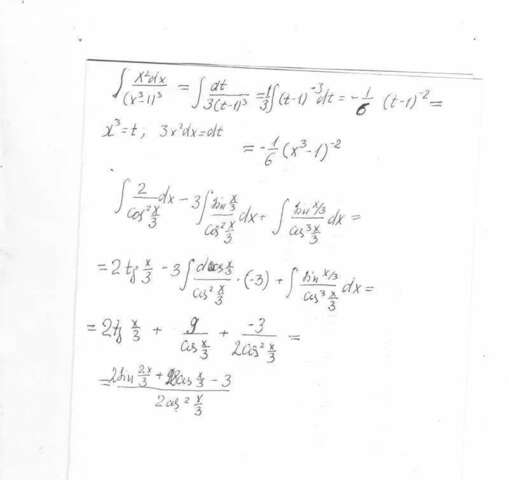 ∫ x²dx/(x³-1)³ = ∫ dt/3(t-1)³ = 1/3 ∫(t-1)⁻³dt = -1/6 (t-1)⁻² =
x³=t; 3x²dx=dt
= -1/6 (x³-1)⁻²
∫ 2/cos² x/3 dx - 3∫ sin x/3 / cos² x/3 dx + ∫ sin x/3 / cos³ x/3 dx =
= 2 tg x/3 - 3∫ dcos x/3 / cos² x/3 · (-3) + ∫ sin x/3 / cos³ x/3 dx =
= 2tg x/3 + 9/cos x/3 + -3/2cos² x/3 =
= 2sin 2x/3 + 18cos x/3 - 3 / 2cos² x/3